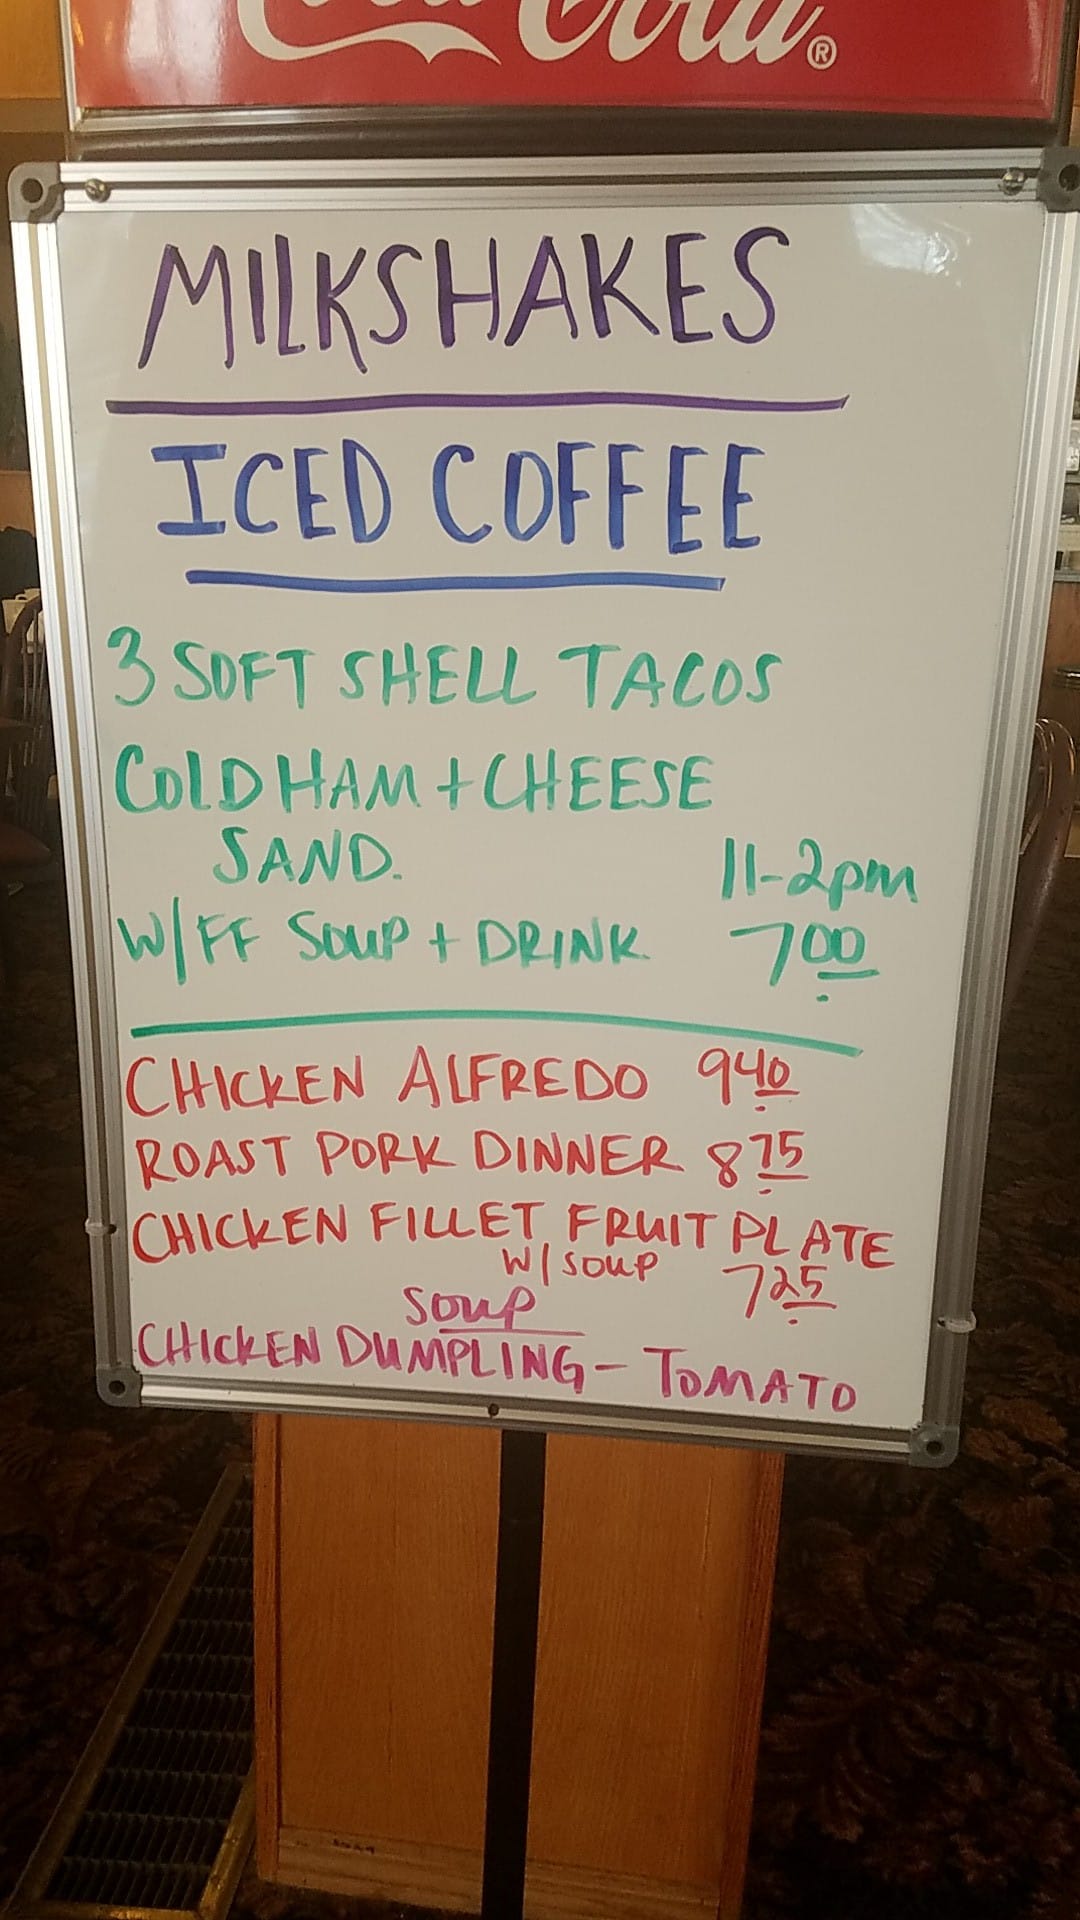 Coca-Cola®
MILKSHAKES
ICED COFFEE
3 SOFT SHELL TACOS
COLD HAM + CHEESE
SAND. 11-2pm
W/FF SOUP + DRINK 700
CHICKEN ALFREDO 940
ROAST PORK DINNER 875
CHICKEN FILLET FRUIT PLATE
W/SOUP 725
SOUP
CHICKEN DUMPLING - TOMATO